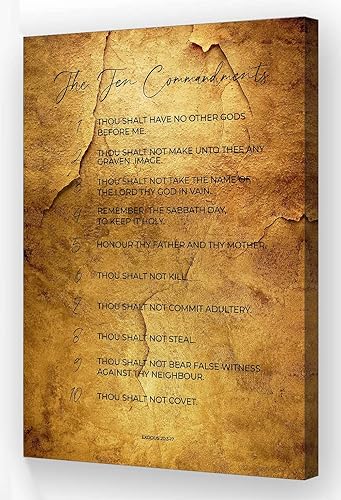 The Ten Commandments
1 THOU SHALT HAVE NO OTHER GODS
BEFORE ME.
2 THOU SHALT NOT MAKE UNTO THEE ANY
GRAVEN IMAGE.
3 THOU SHALT NOT TAKE THE NAME OF
THE LORD THY GOD IN VAIN.
4 REMEMBER THE SABBATH DAY,
TO KEEP IT HOLY.
5 HONOUR THY FATHER AND THY MOTHER.
6 THOU SHALT NOT KILL.
7 THOU SHALT NOT COMMIT ADULTERY.
8 THOU SHALT NOT STEAL.
9 THOU SHALT NOT BEAR FALSE WITNESS
AGAINST THY NEIGHBOUR.
10 THOU SHALT NOT COVET.
EXODUS 20:3-17